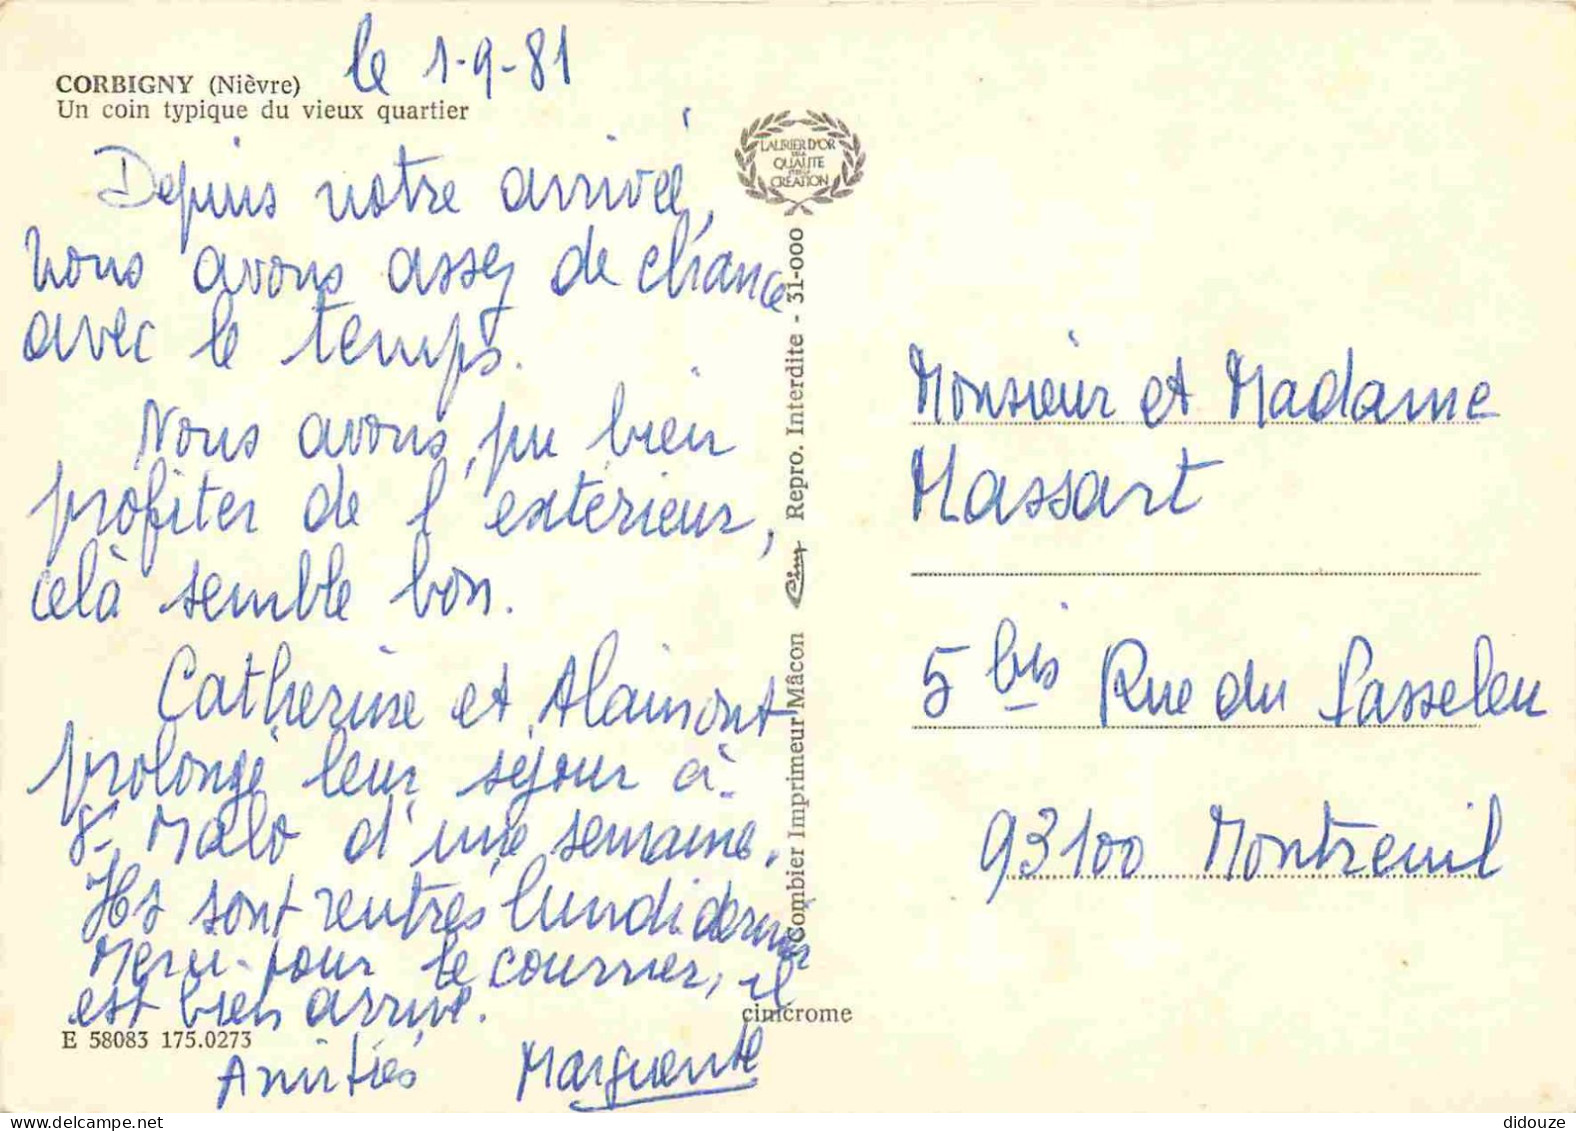 CORBIGNY (Nièvre)
Un coin typique du vieux quartier
le 1-9-81
Depuis notre arrivée,
nous avons assez de chance
avec le temps.
Nous avons pu bien
profiter de l'extérieur,
celà semble bon.
Catherine et Alain ont
prolongé leur séjour à
St Malo d'une semaine.
Ils sont rentrés lundi dernier
Merci pour le courrier, il
est bien arrivé.
Amitiés Marguerite
E 58083 175.0273
LAURIER D'OR
DE LA
QUALITE
CREATION
Combier Imprimeur Mâcon Cim Repro. Interdite - 31-000
cimcrome
Monsieur et Madame
Massart
5 bis Rue du Passeleu
93100 Montreuil
didouze